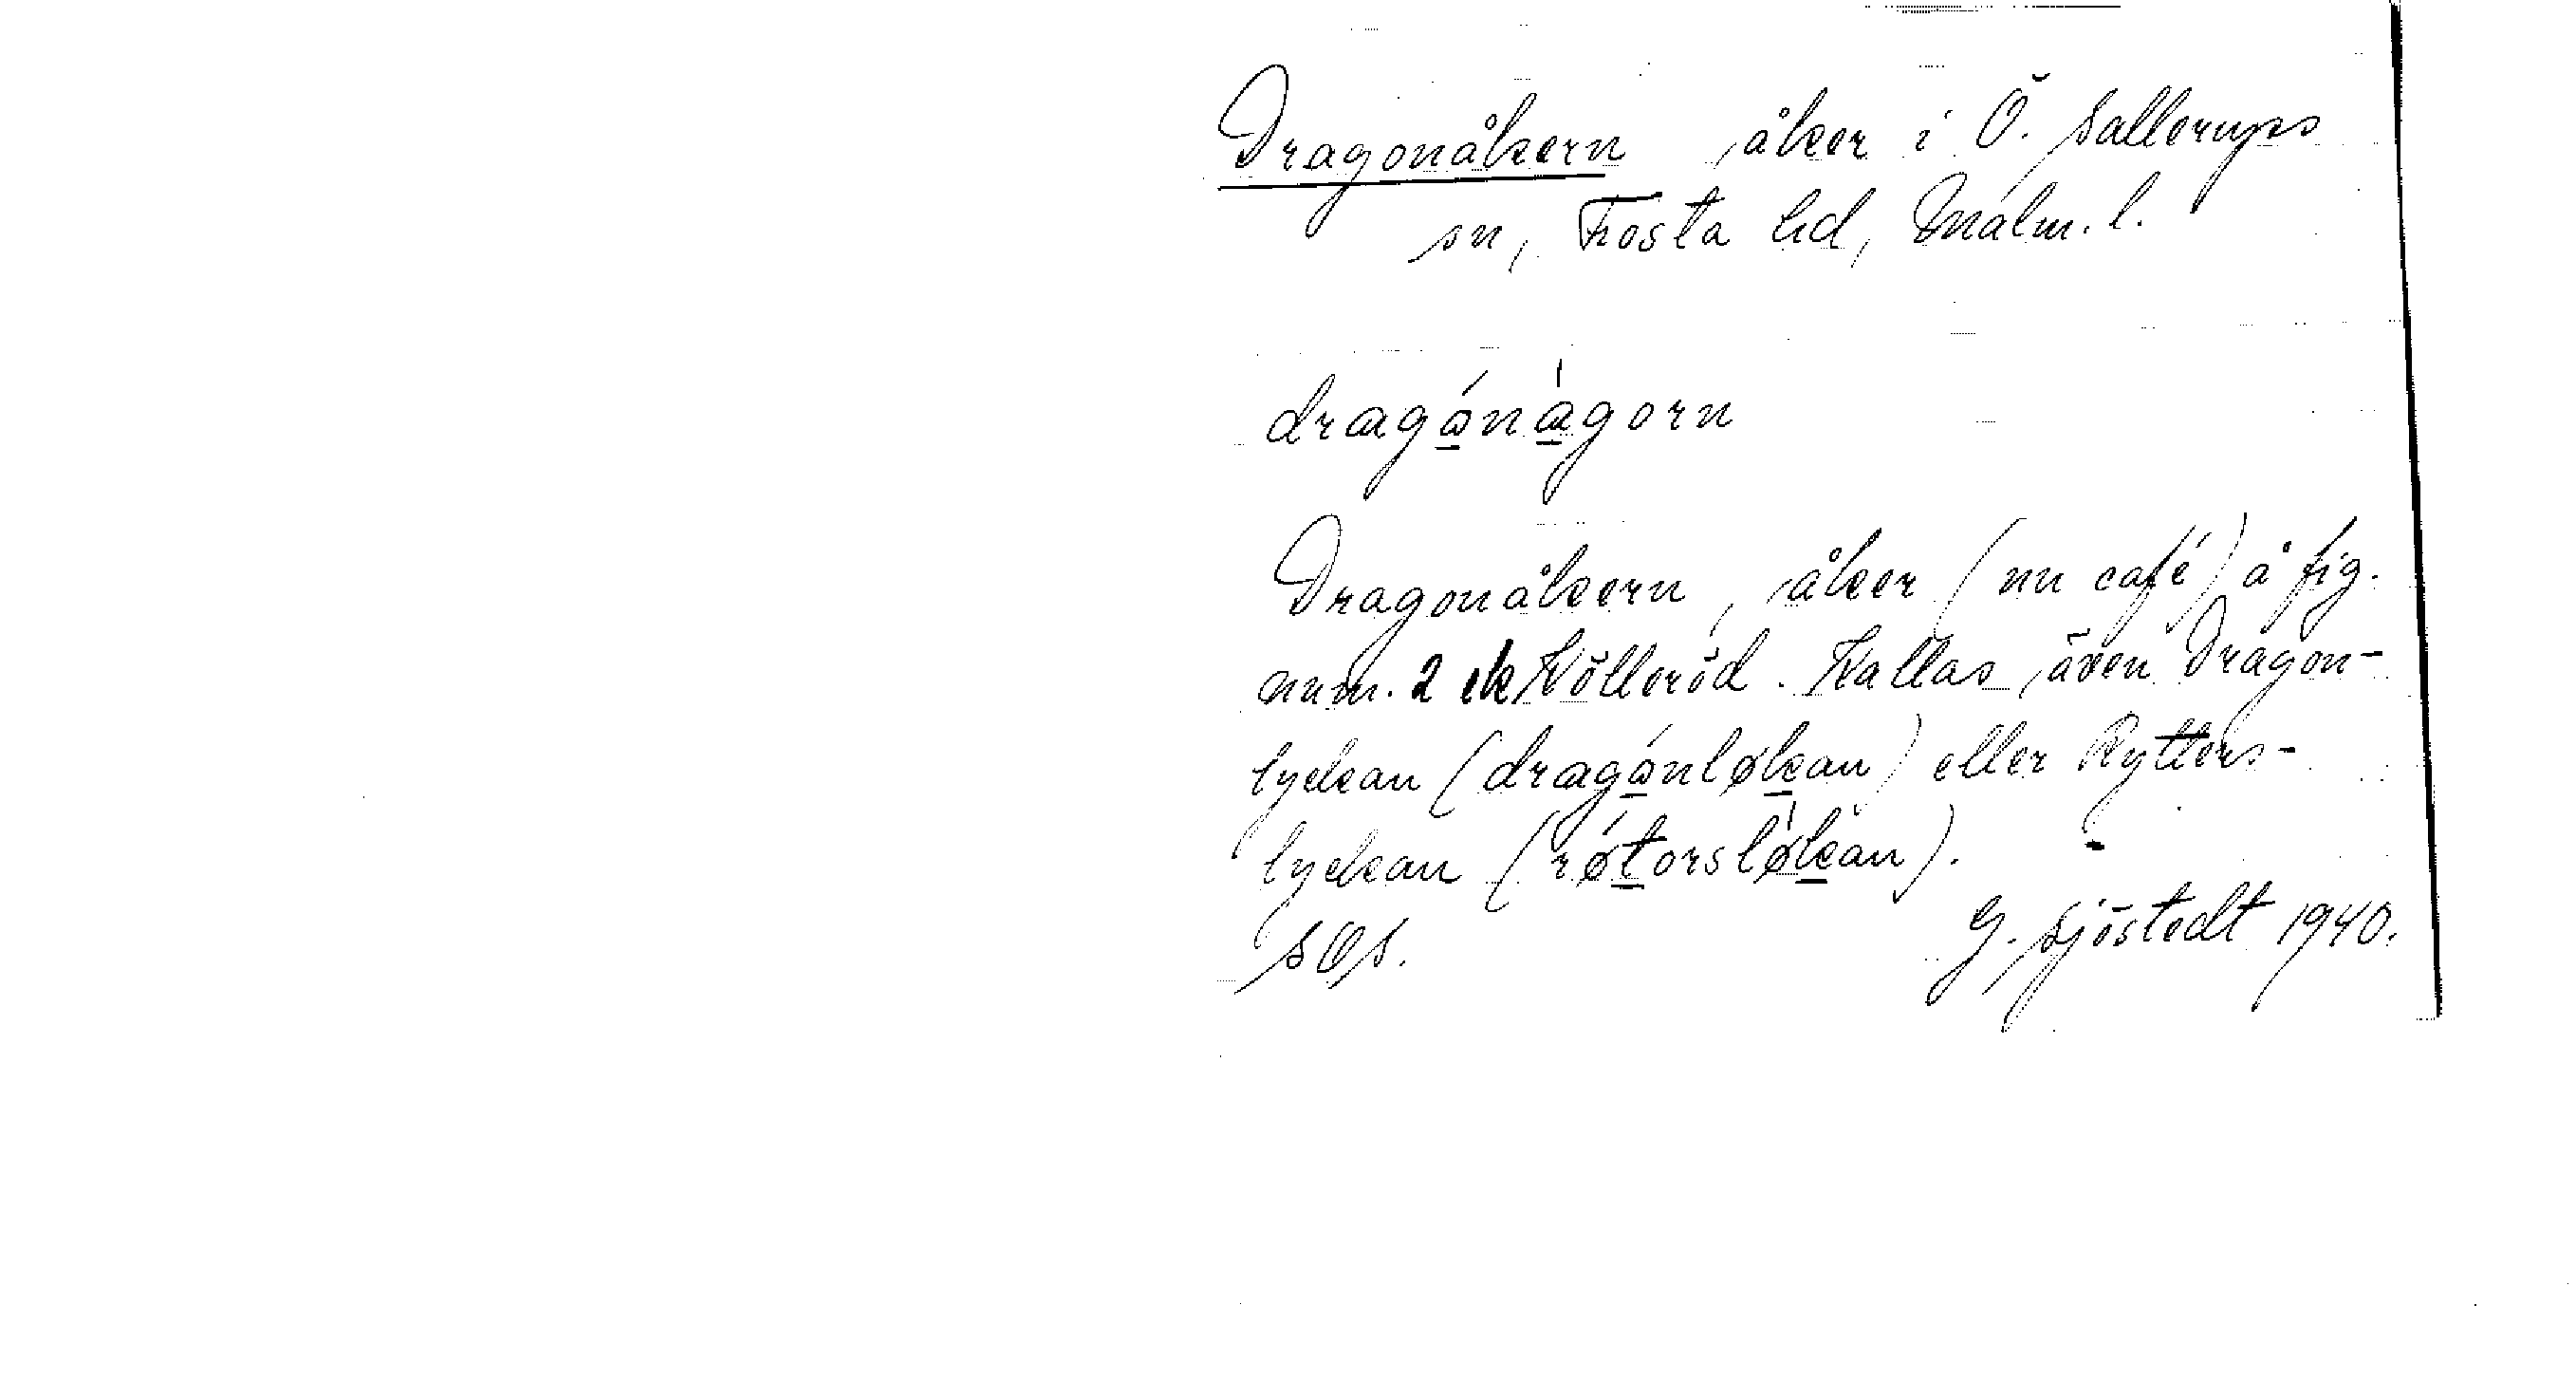 Dragonåkern, åker i Ö. Sallerups
sn, Frosta hd, Malm. l.
dragónàgorn
Dragonåkern, åker (nu café) å fig.
num. 2 ek Kölleröd. Kallas även Dragon-
lyckan (dragónløkan) eller Rytters-
lyckan (røtorsløkan).
SOS.
G. Sjöstedt 1940.